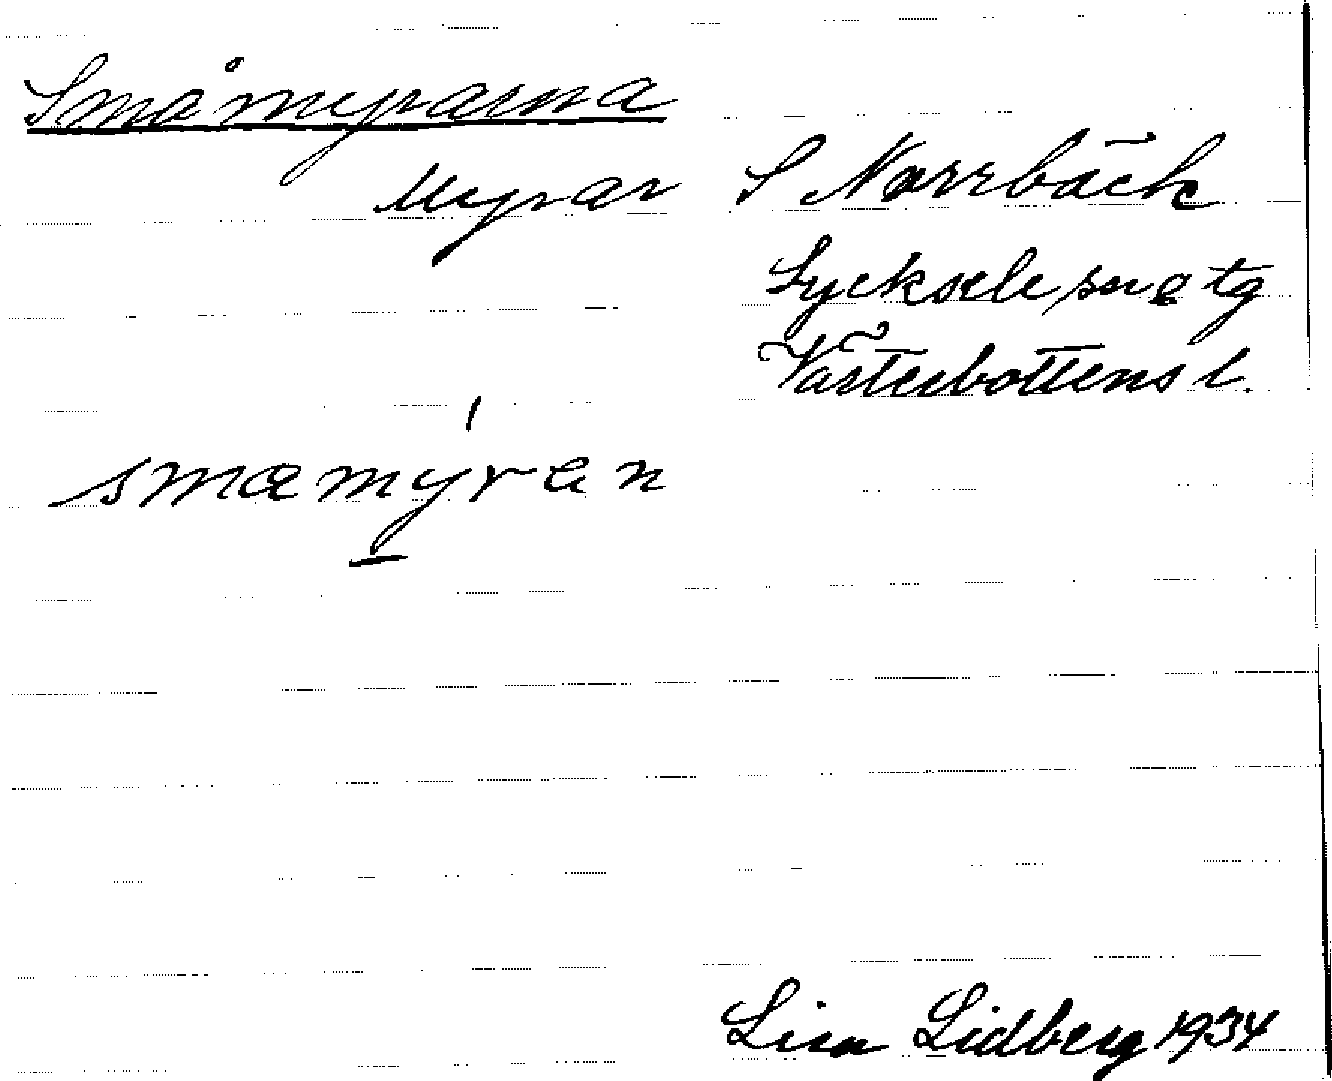 Småmyrarna
Myrar S Norrbäck
Lycksele sn o tg
Västerbottens l.
smæmýran
Lisa Lidberg 1934